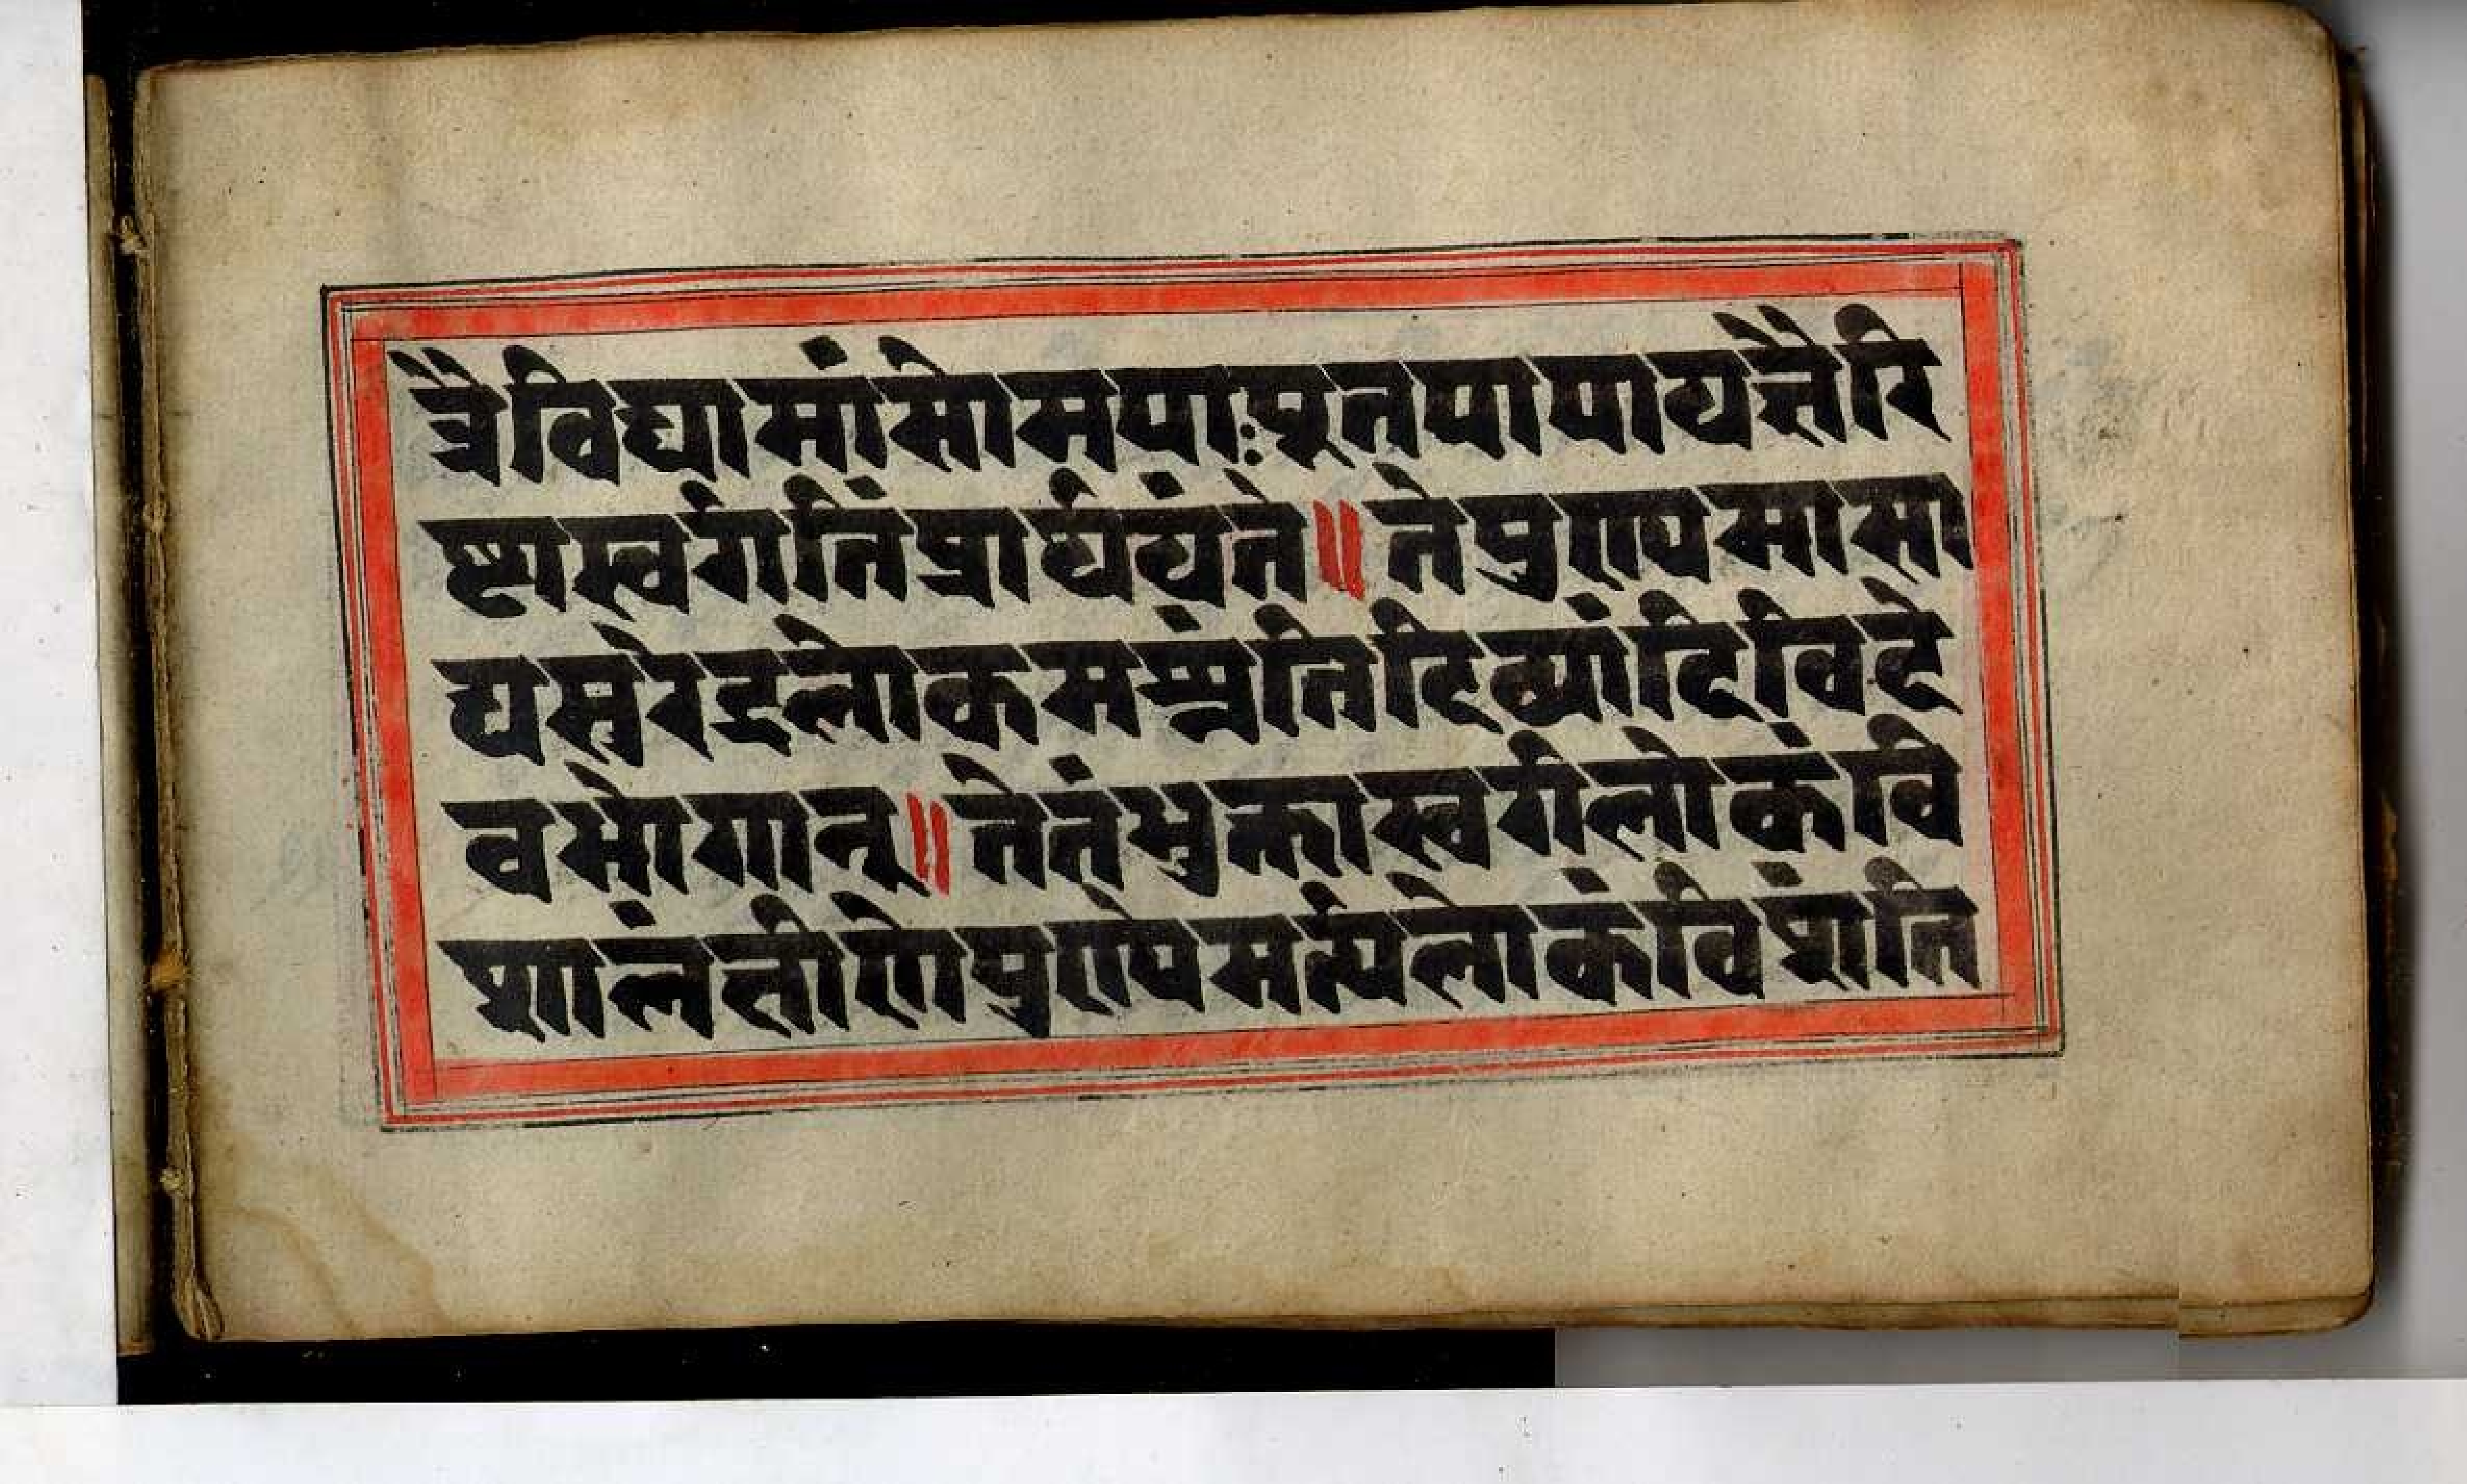 त्रैविद्यामांसोमपाःपूतपापायज्ञैरि
ष्टास्वर्गतिंप्रार्थयंते॥तेपुण्यमासा
द्यसुरेंद्रलोकमश्नंतिदिव्यांदिविदे
वभोगान्॥तेतंभुक्तास्वर्गलोकंवि
शालंक्षीणेपुण्येमर्त्यलोकंविशंति